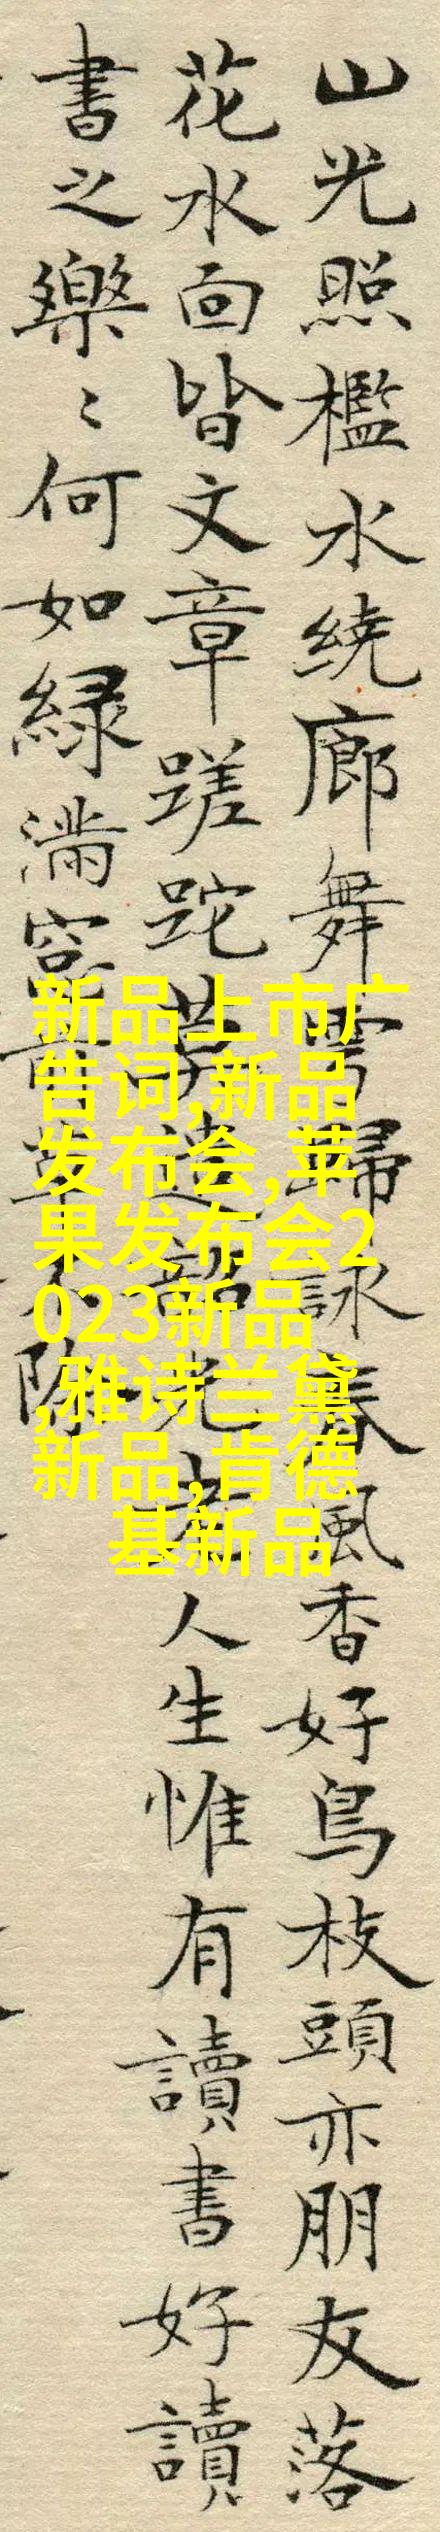 山光照檻水繞廊舞雩歸詠春風香好鳥枝頭亦朋友落
花水面皆文章蹉跎莫遣韶光老人生惟有讀書好讀
書之樂〻何如綠滿窗前草不除
新品上市广
告词,新品
发布会,苹
果发布会2
023新品
,雅诗兰黛
新品,肯德
基新品